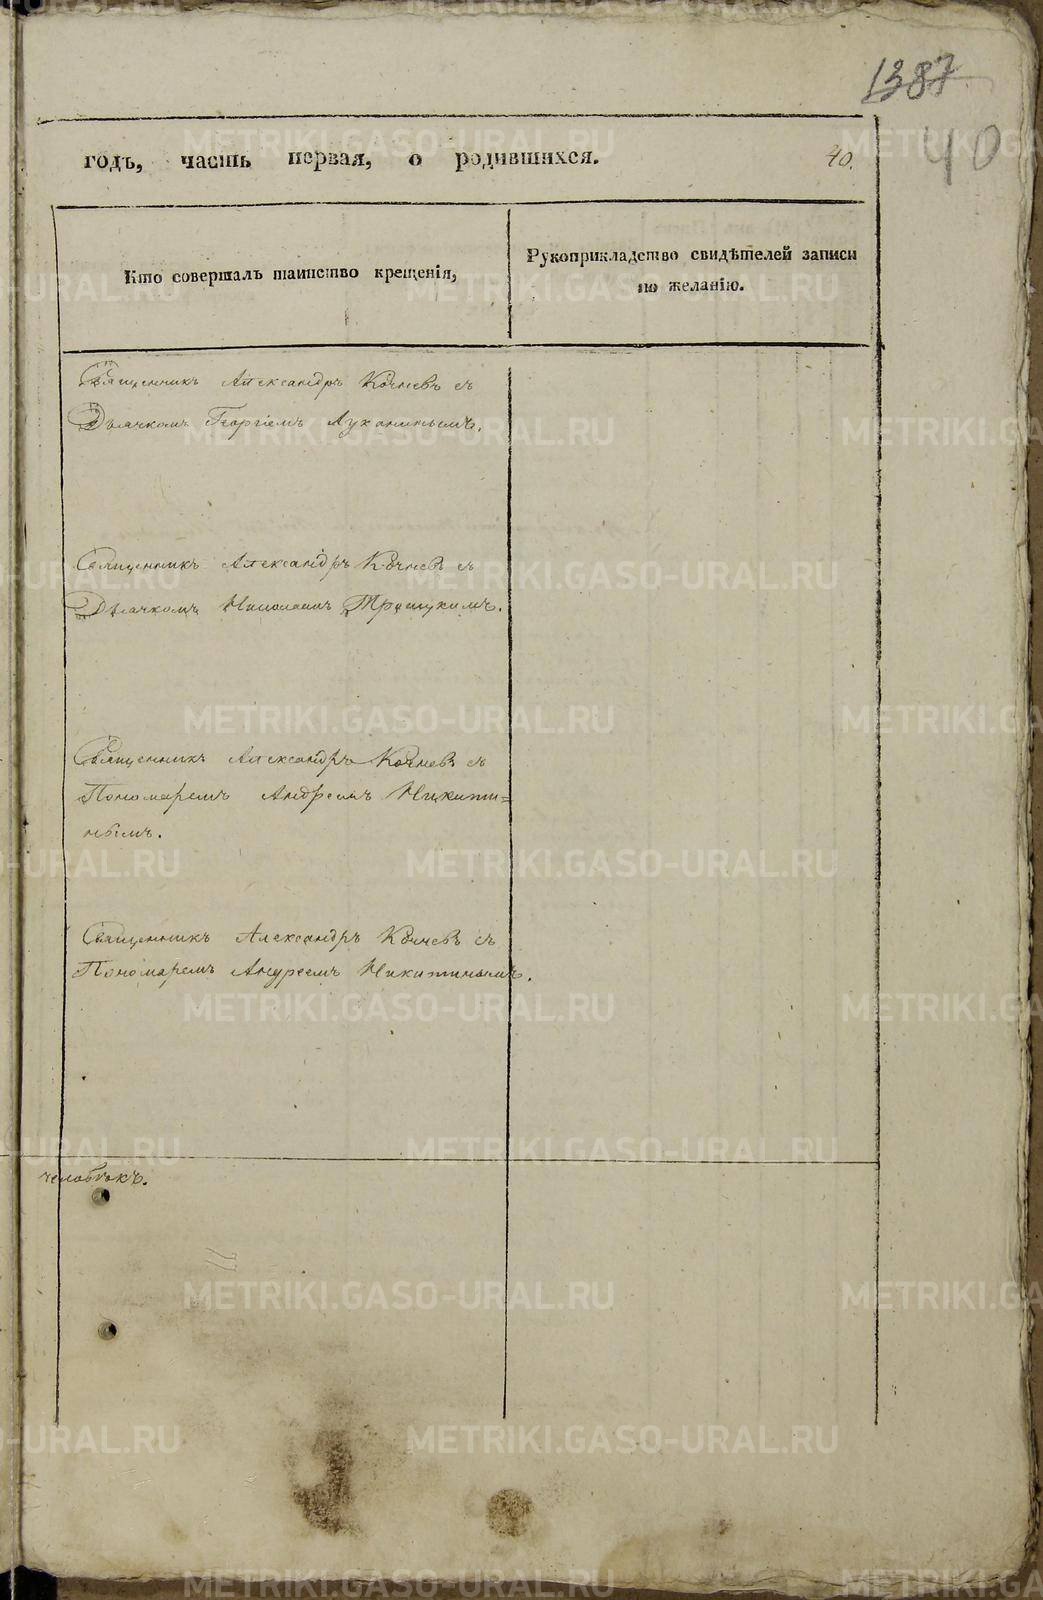 1387
40
годъ, часть первая, о родившихся. 40.
Кто совершалъ таинство крещенія,
Рукоприкладство свидѣтелей записи
по желанію.
Священникъ Александръ Кочневъ съ
Дьячкомъ Георгіемъ Луканинымъ.
Священникъ Александръ Кочневъ съ
Дьячкомъ Николаемъ
Священникъ Александръ Кочневъ съ
Пономаремъ Андреемъ Никити=
нымъ.
Священникъ Александръ Кочневъ съ
Пономаремъ Андреемъ Никитинымъ.
человѣкъ.
METRIKI.GASO-URAL.RU